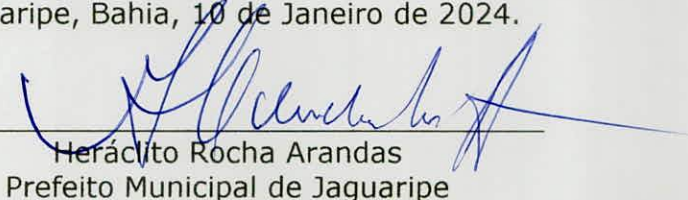 aripe, Bahia, 10 de Janeiro de 2024.
Heráclito Rocha Arandas
Prefeito Municipal de Jaguaripe